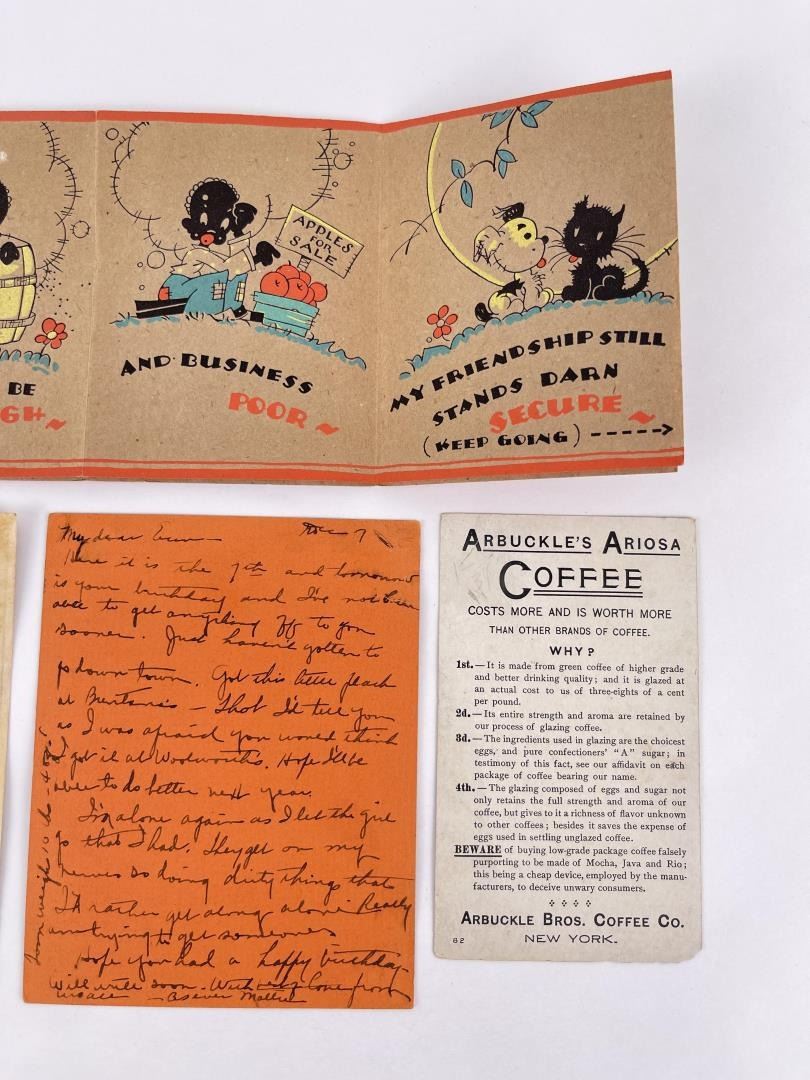 BE
GH~
APPLES
FOR
SALE
AND BUSINESS
POOR ~
MY FRIENDSHIP STILL
STANDS DARN
SECURE ~
(KEEP GOING) ----->
My dear
7
Here it is the 7th and tomorrow
is your birthday and I've not been
able to get anything off to you
sooner. Just haven't gotten to
go down town. Got this little
at Brentano's — Thot I'd tell you
as I was afraid you would think
I got it at Woolworths. Hope I'll be
able to do better next year.
I'm alone again as I let the girl
go that I had. They get on my
nerves so doing dirty things that
I'd rather get along alone. Really
am trying to get someone
Hope you had a happy birthday
Will write soon. With love from
us all — As ever Mollie
weigh 10 lbs
ARBUCKLE'S ARIOSA
COFFEE
COSTS MORE AND IS WORTH MORE
THAN OTHER BRANDS OF COFFEE.
WHY?
1st.—It is made from green coffee of higher grade
and better drinking quality; and it is glazed at
an actual cost to us of three-eights of a cent
per pound.
2d.—Its entire strength and aroma are retained by
our process of glazing coffee.
3d.—The ingredients used in glazing are the choicest
eggs, and pure confectioners' "A" sugar; in
testimony of this fact, see our affidavit on each
package of coffee bearing our name.
4th.—The glazing composed of eggs and sugar not
only retains the full strength and aroma of our
coffee, but gives to it a richness of flavor unknown
to other coffees; besides it saves the expense of
eggs used in settling unglazed coffee.
BEWARE of buying low-grade package coffee falsely
purporting to be made of Mocha, Java and Rio;
this being a cheap device, employed by the manu-
facturers, to deceive unwary consumers.
ARBUCKLE BROS. COFFEE CO.
62 NEW YORK.